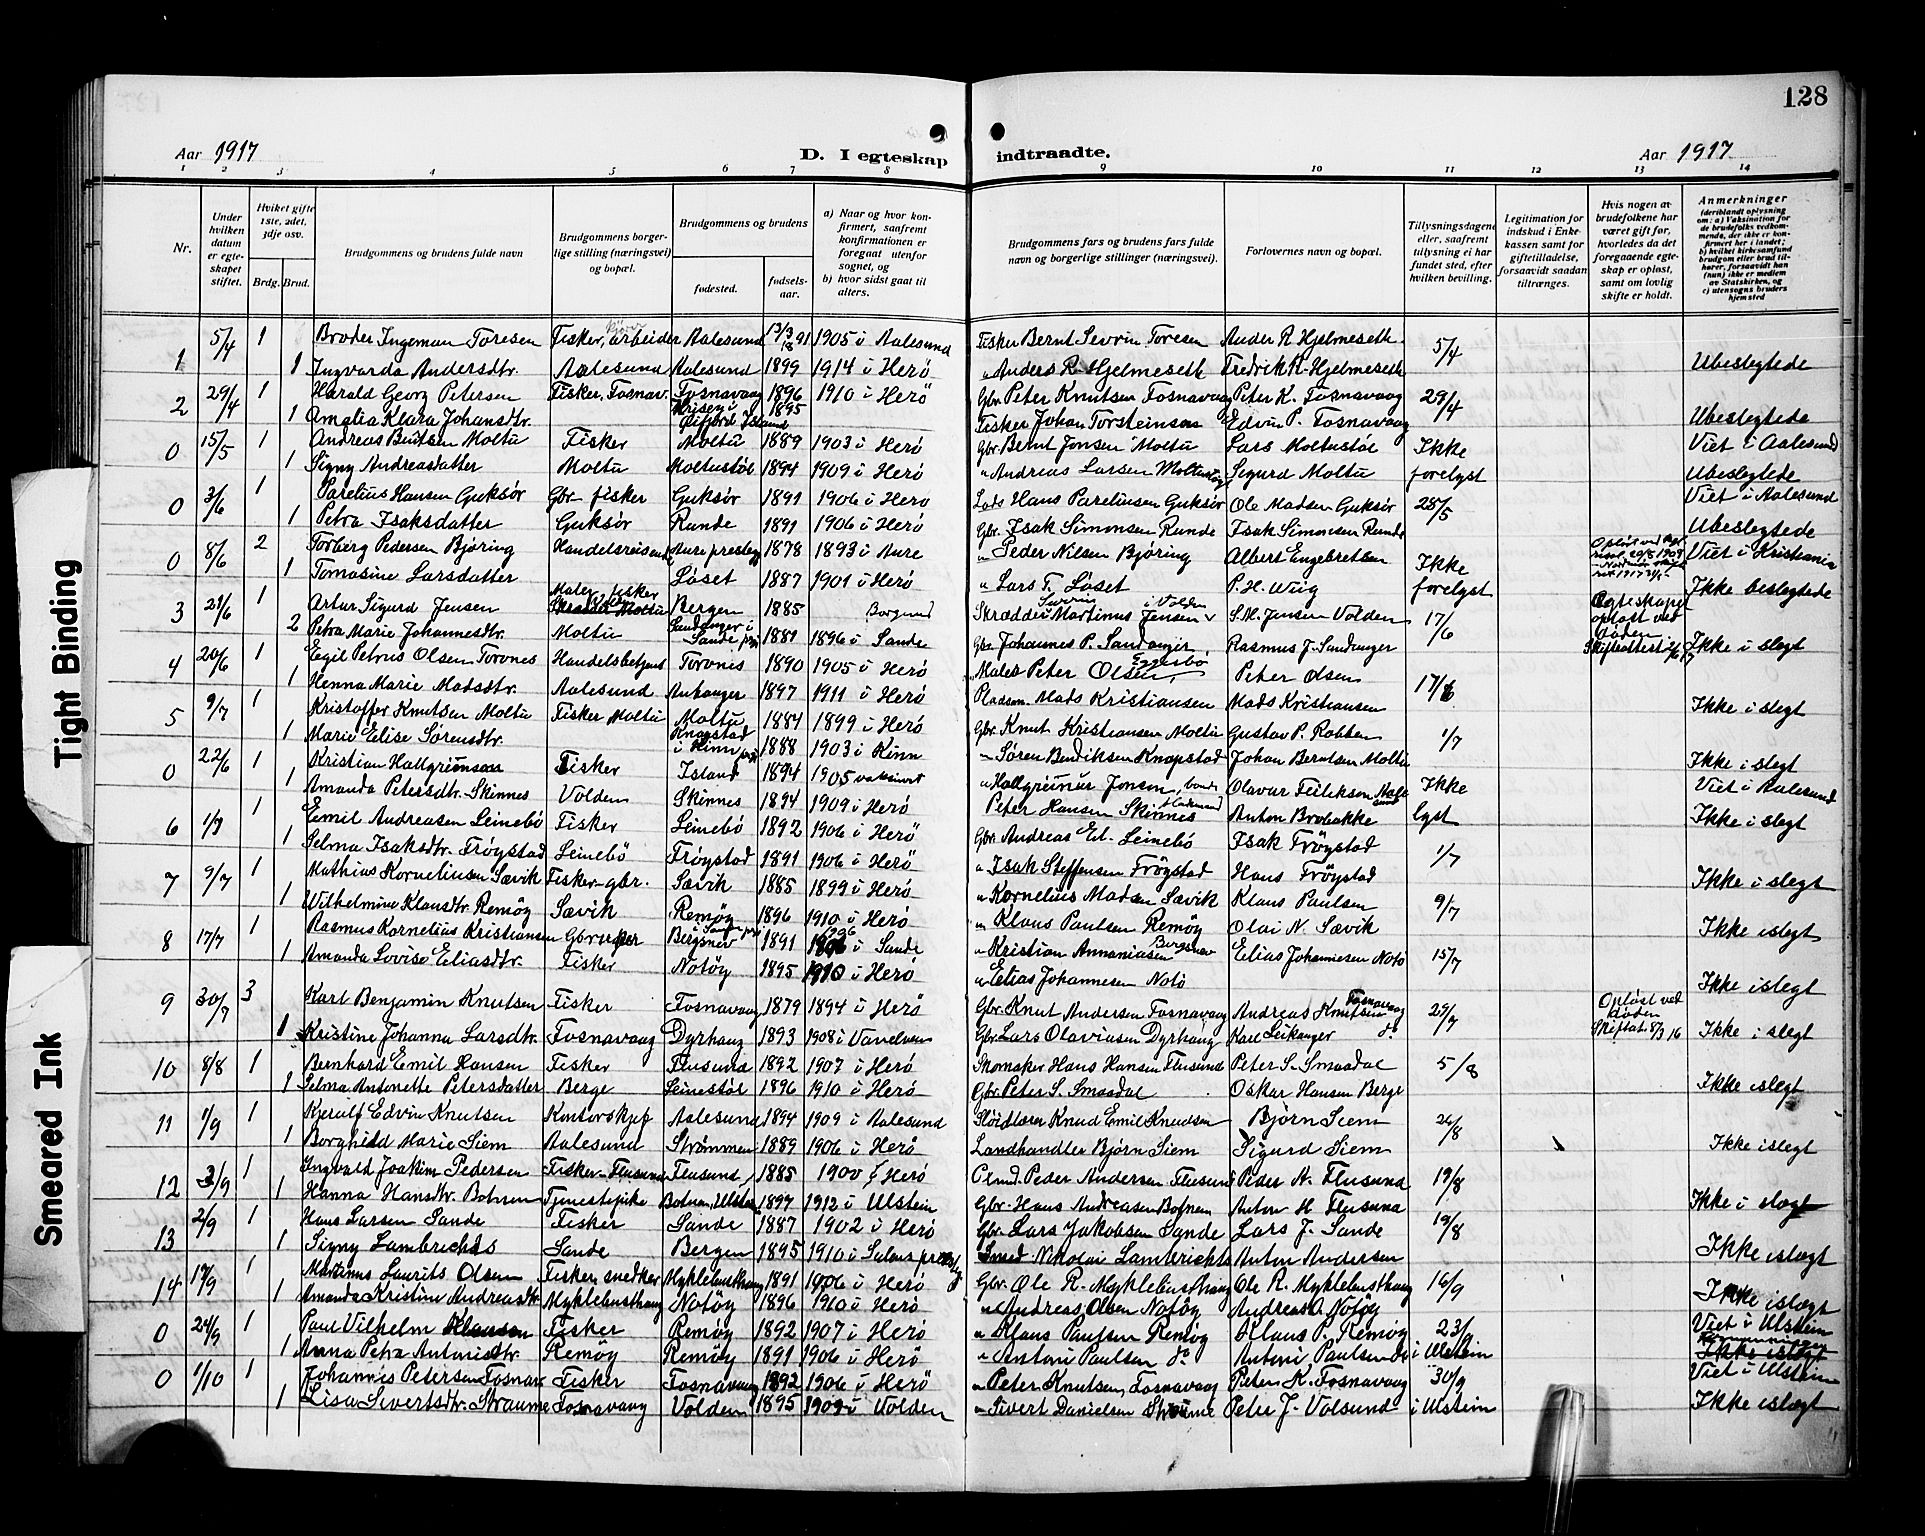 128
Aar 1917
D. I egteskap
indtraadte.
Aar 1917
1 2 3 4 5 6 7 8 9 10 11 12 13 14
Nr.
Under hvilken datum er egteskapet stiftet.
Hviket gifte 1ste, 2det, 3dje osv.
Brdg. Brud.
Brudgommens og brudens fulde navn
Brudgommens borgerlige stilling (næringsvei) og bopæl.
Brudgommens og brudens
fødested.
fødselsaar.
a) Naar og hvor konfirmert, saafremt konfirmationen er foregaat utenfor sognet, og
b) hvor sidst gaat til alters.
Brudgommens fars og brudens fars fulde navn og borgerlige stillinger (næringsvei).
Forlovernes navn og bopæl.
Tillysningsdagene eller, saafremt tillysning ei har fundet sted, efter hvilken bevilling.
Legitimation for indskud i Enkekassen samt for giftetilladelse, forsaavidt saadan tiltrænges.
Hvis nogen av brudefolkene har været gift før, hvorledes da det foregaaende egteskap er opløst, samt om lovlig skifte er holdt.
Anmerkninger
(deriblandt oplysning om: a) Vaksination for de brudefolks vedkommende, der ikke er konfirmert her i landet; b) hvilket kirkesamfund brudgom eller brud tilhører, forsaavidt han (hun) ikke er medlem av Statskirken, og c) utensogns bruders hjemsted
1 5/4 1 Brøder Ingeman Toresen Fisker, arbeider Aalesund 13/3 91 1905 i Aalesund Fisker Bernt Sevrin Toresen Ander R Hjelmeseth 5/4
1 Ingvarda Andersdtr. Aalesund Aalesund 1899 1914 i Herö " Anders R. Hjelmeseth Fredrik R. Hjelmeseth Ubeslegtede
2 29/4 1 Harald Georg Petersen Fisker, Fosnav. Fosnavaag 1896 1910 i Herö Gbr Peter Knutsen Fosnavaag Peter K. Fosnavaag 29/4
1 Amalia Klara Johansdtr. Island 1895 Fisker Johan Torsteinson Edvin P. Fosnavaag Ubeslegtede
0 15/5 1 Andreas Berntsen Moltu Fisker Moltu 1889 1903 i Herö Gbr Bernt Jonsen Moltu Lars Moltustøl Ikke Viet i Aalesund
1 Signy Andreasdatter Moltu Moltustøl 1894 1909 i Herö " Andreas Larsen Sigurd Moltu forelyst Ubeslegtede
0 3/6 1 Parelius Hansen Guksør Gbr. fisker Guksør 1891 1906 i Herö Hans Pareliusen Guksør Ole Madsen Guksør 28/5 Viet i Aalesund
1 Petra Isaksdatter Guksør Runde 1891 1906 i Herö Gbr. Isak Simonsen Runde Isak Simonsen Runde Ubeslegtede
0 8/6 2 Torberg Pedersen Bjøring Handelsreisende Aure prestegj 1878 1893 i Aure " Peder Nilsen Bjøring Albert Engebretsen Ikke Viet i Kristiania
1 Tomasine Larsdatter Løset 1887 1901 i Herö " Lars T. Løset P. H. Wiig forelyst Ikke beslegtede
3 21/6 1 Artur Sigurd Jensen Maler, fisker Moltu Bergen 1885 Borgund Skrædder Martinus Jensen i Volden S. M. Jensen Volden 17/6 Egteskapet opløst ved døden
2 Petra Marie Johannesdtr. Moltu Sandanger i Sande 1881 1896 i Sande Gbr. Johannes P. Sandanger Rasmus J. Sandanger Skifteattest 2/6 17 Ikke i slegt
4 20/6 1 Egil Petrus Olsen Torvnes Handelsbetjent Torvnes 1890 1905 i Herö Maler Peter Olsen, Eggesbø Peter Olsen 17/6
1 Henna Marie Madsdtr. Aalesund 1897 1911 i Herö Pladsm. Mads Kristiansen Mads Kristiansen Ikke i slegt
5 9/7 1 Kristoffer Knutsen Moltu Fisker Moltu Moltu 1884 1899 i Herö Gbr. Knut Kristiansen Moltu Gustav P. Robben 1/7
1 Marie Elise Sørensdtr. Knapstad i Kinn 1888 1903 i Kinn " Søren Bendiksen Knapstad Johan Berntsen Moltu Ikke i slegt
0 22/6 1 Kristian Hallgrimson Fisker Island 1894 1905 vaksinert " Hallgrimur Jonson, bonde Island Ikke Viet i Aalesund
1 Amanda Petersdtr. Skinnes Volden Skinnes 1894 1909 i Herö Peter Hansen Skinnes Anton Brobakke lyst Ikke i slegt
6 1/7 1 Emil Andreasen Leinebö Fisker Leinebö 1892 1906 i Herö Gbr. Andreas Ed. Leinebö Isak Fröystad 1/7
1 Selma Isaksdtr. Fröystad Leinebö Fröystad 1891 1906 i Herö " Isak Steffensen Fröystad Hans Fröystad Ikke i slegt
7 9/7 1 Mathias Korneliusen Sævik Fisker-gbr. Sævik 1885 1899 i Herö " Kornelius Madsen Sævik Klaus Paulsen 9/7
1 Vilhelmine Klausdtr. Remöy Sævik Remöy 1896 1910 i Herö " Klaus Paulsen Remöy Olai N. Sævik Ikke islegt
8 17/7 1 Rasmus Kornelius Kristiansen Gbrusker Bergsnev 1891 1906 i Sande " Kristian Annaniasen Bergsnev Elias Johannesen Notö 15/7
1 Amanda Lovise Eliasdtr. Fisker Notöy 1895 1910 i Herö " Elias Johannesen Notö Ikke islegt
9 30/7 3 Karl Benjamin Knutsen Fisker Fosnavaag 1879 1894 i Herö Gbr. Knut Andersen Fosnavaag Andreas Knutsen Fosnavaag 29/7 Opløst ved døden
1 Kristine Johanna Larsdtr. Fosnavaag Dyrhaug 1893 1908 i Vanelven Gbr. Lars Olaviusen Dyrhaug Karl Leikanger do Skiftat. 8/3 16 Ikke i slegt
10 8/8 1 Bernhard Emil Hansen Fisker Flusund 1892 1907 i Herö Skomaker Hans Hansen Flusund Peter S. Smaadal 5/8
1 Selma Antonette Petersdatter Berge Leinestøl 1896 1910 i Herö Gbr. Peter S. Smaadal Oskar Hansen Berge Ikke islegt
11 1/9 1 Kjeralf Edvin Knutsen Kontorskjef Aalesund 1894 1909 i Aalesund Sløidlærer Knud Emil Knudsen Bjørn Siem 26/8
1 Borghild Marie Siem Aalesund Strømmen 1889 1906 i Herö Landhandler Bjørn Siem Sigurd Siem Ikke islegt
12 3/9 1 Ingvald Joakim Pedersen Fisker-Flusund Flusund 1885 1900 i Herö Peder Andersen Flusund Peder N. Flusund 19/8
1 Hanna Hansdtr. Botnen Tjenestepike Botnen, Ulstein 1897 1912 i Ulstein Gbr. Hans Andreasen Botnen Anton H. Flusund Ikke i slegt
13 2/9 1 Hans Larsen Sande Fisker Sande 1887 1902 i Herö Gbr. Lars Jakobsen Sande Lars J. Sande 19/8
1 Signy Lambrichts Sande Bergen 1895 1910 i Smed Nikolai Lambrichts Anton Andersen Ikke islegt
14 17/9 1 Martinus Laurits Olsen Fisker, snedker Myklebusthaug 1891 1906 i Herö Gbr. Ole R. Myklebusthaug Ole R. Myklebusthaug 16/9
1 Amanda Kristine Andreasdtr Myklebusthaug Notöy 1896 1910 i Herö " Andreas Olsen Notöy Andreas O. Notöy Ikke islegt
0 24/9 1 Paul Vilhelm Klausen Fisker Remöy 1892 1907 i Herö " Klaus Paulsen Remöy Klaus P. Remöy 23/9 Viet i Ulstein
1 Anna Petra Antonisdtr. Remöy Remöy 1891 1906 i Herö " Antoni Paulsen do Antoni Paulsen do i Ulstein Ikke islegt
0 1/10 1 Johannes Petersen Fosnav. Fisker Fosnavaag 1892 1906 i Herö " Peter Knutsen, Fosnavaag Peter K. Fosnavaag 30/9 Viet i Ulstein
1 Lisa Sivertsdtr. Straume Fosnavaag Volden 1895 1909 i Volden " Sivert Danielsen Straume Peter J. Volsund i Ulstein Ikke islegt
Tight Binding
Smeared Ink